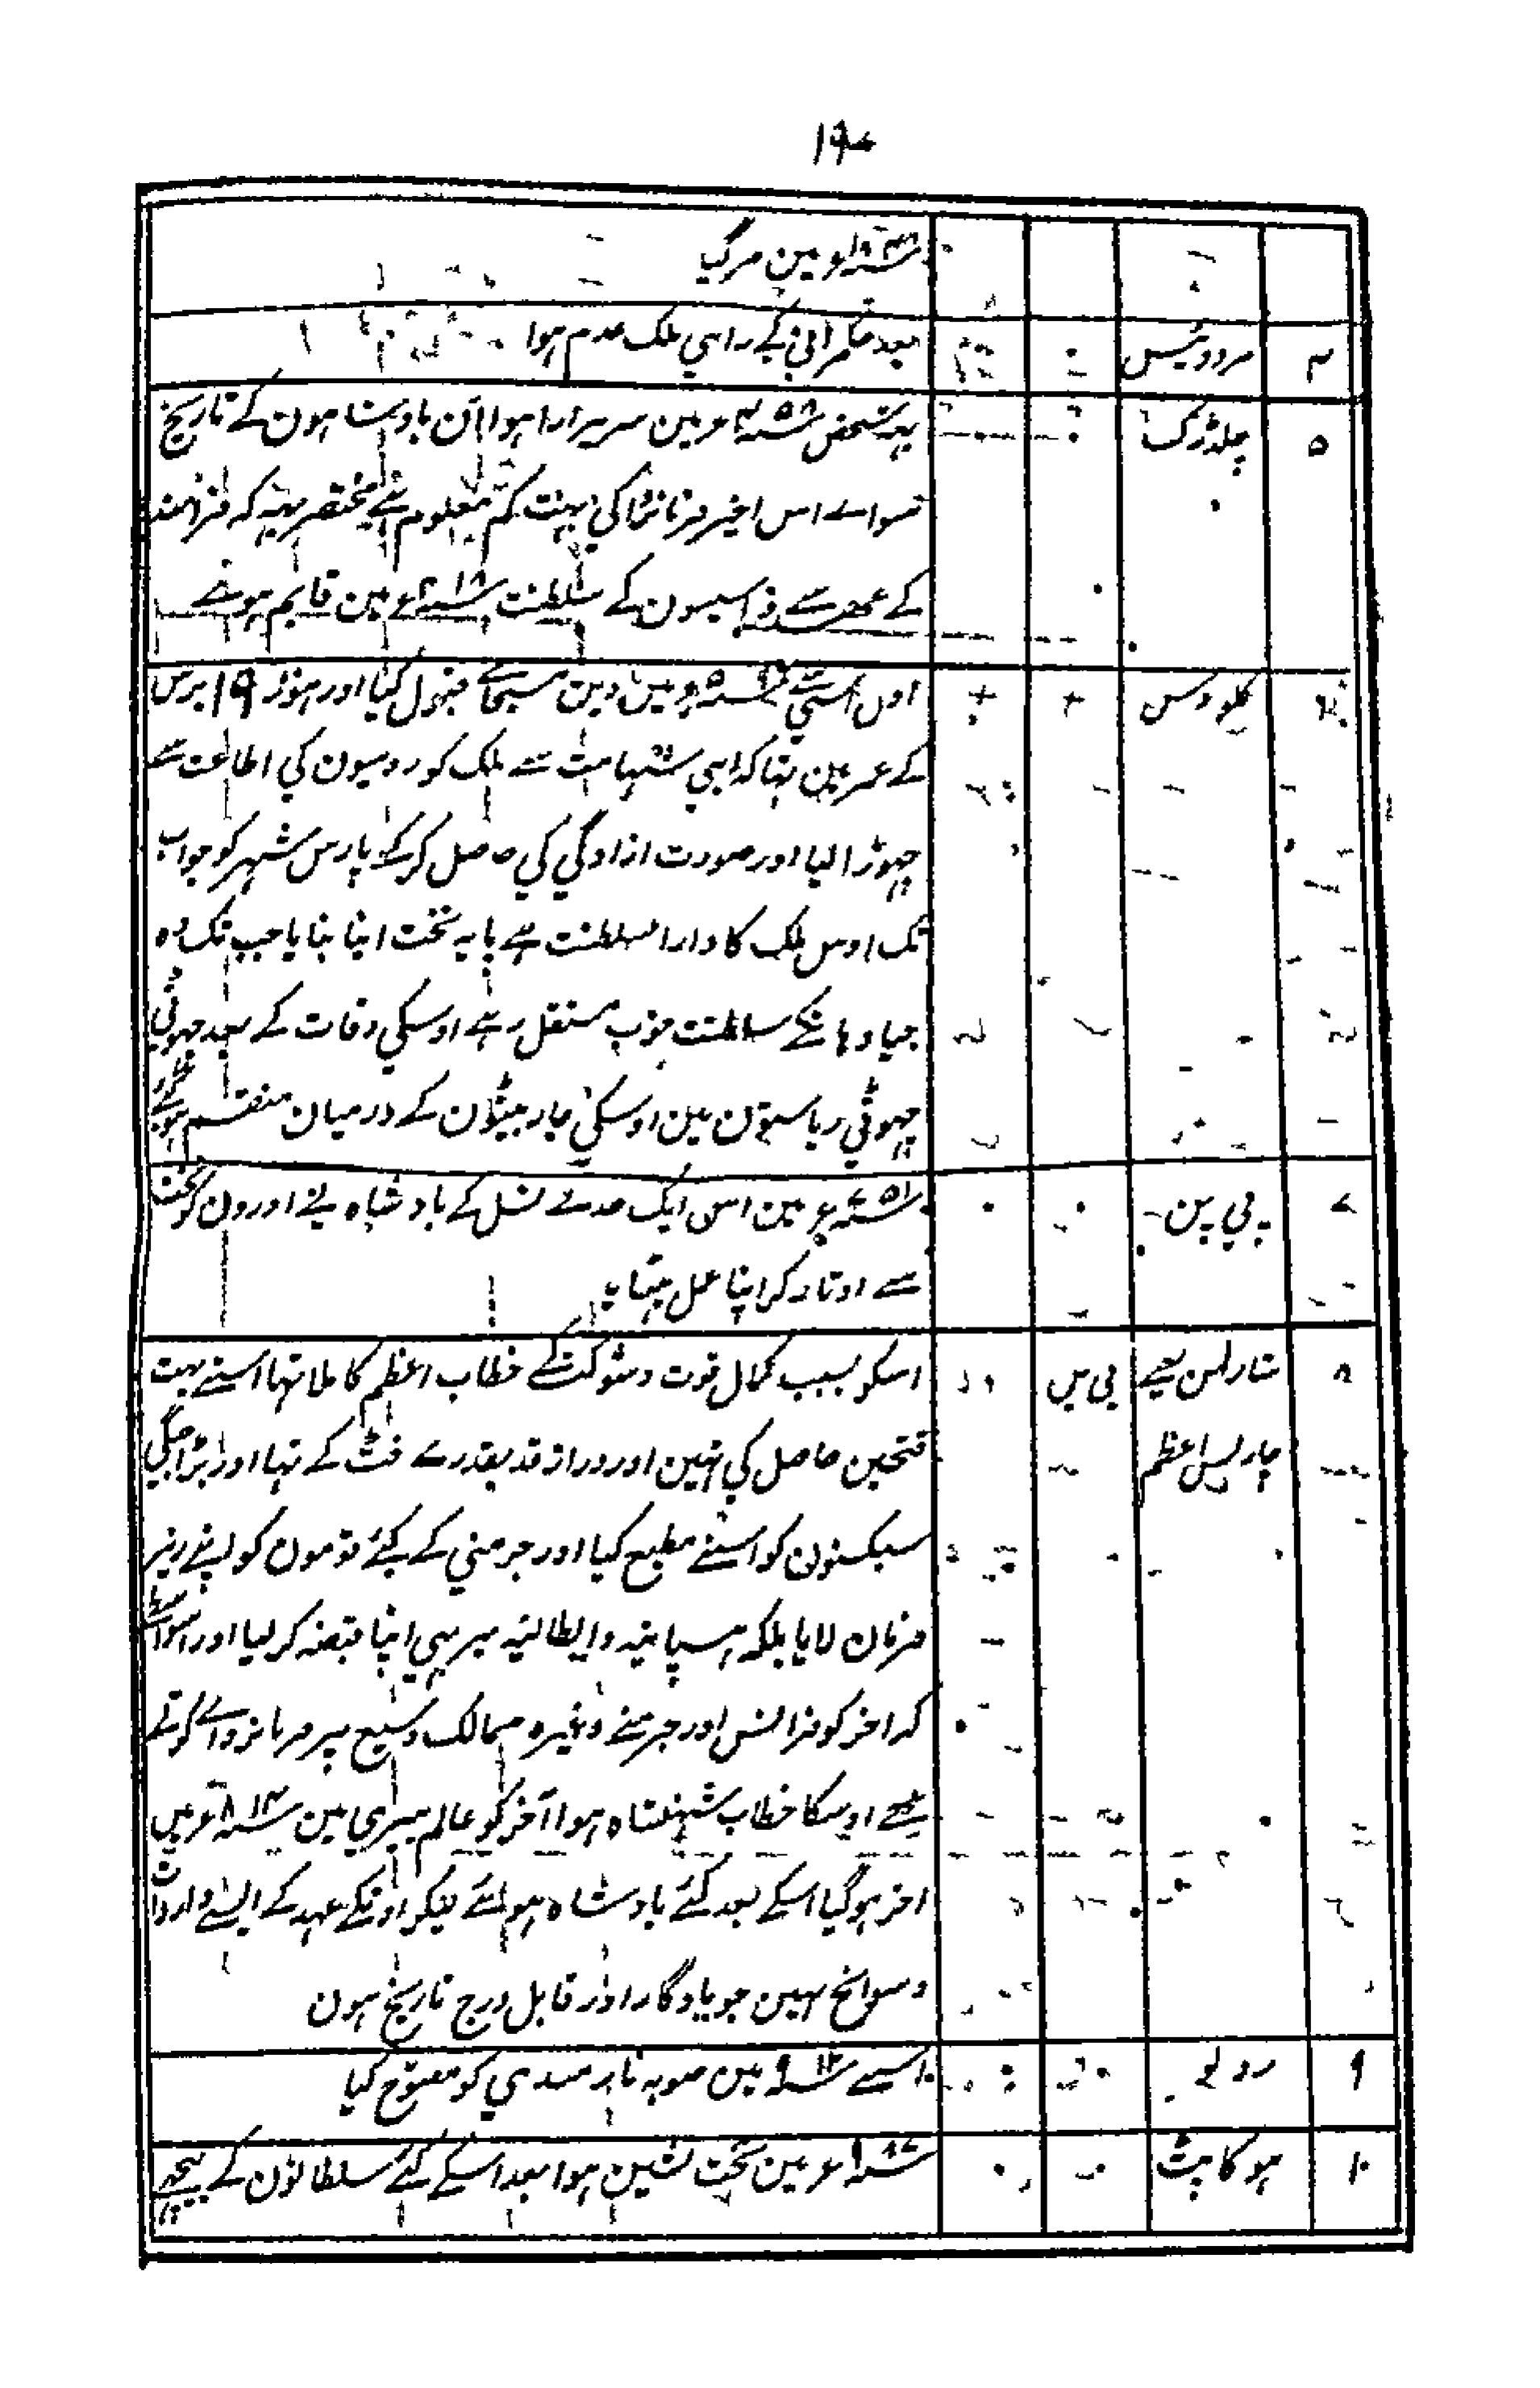 ۱۹۰
میں مرگیا
۴ مردویئس بعد حکمرانی کے راہی ملک عدم ہوا
۵ چلڈرک یہہ شخص ۴۵۸ء مین سریرارا ہوا ان بادشاہون کے تاریخ
سواے اس اخیر فرمانفرما کی بہت کم معلوم ہے مختصر یہہ کہ
کے عہد سے فرانسیسون کے سلطنت ۴۸۱ء مین قایم ہوئے
۶ کلودس اوس نے ۴۹۶ء مین دین مسیحائے قبول کیا اور ہنوز ۱۹ برس
کے عمر مین تہا کہ اپنی شہامت سے ملک کو رومیون کی اطاعت سے
چہوڑالیا اور صورت ازادگی کی حاصل کرکے پارس شہر کو جو اب
تک اوس ملک کا دارالسلطنت ہے پایہ تخت اپنا بنایا جب تک وہ
جیا وہانکے سلطنت خوب مستقل رہے اوسکی وفات کے بعد چہوٹی
چہوٹی ریاستون مین اوسکی چار بیٹون کے درمیان منقسم ہوگئے
۷ پی پن ۷۵۱ء مین اس ایک مدے نسل کے بادشاہ نے اورون کو تخت
سے اوتار کر اپنا عمل بٹہایا
۸ شارلمن یعنے پی پن اسکو بسبب کمال قوت و شوکت کے خطاب اعظم کا ملا تہا اسنے بہت
چارلس اعظم فتحین حاصل کی تہین اور دراز قد بقدر ے فٹ کے تہا اور بڑا جنگی
سیکسنون کو اسنے مطیع کیا اور جرمنی کے کئے قومون کو اپنے زیر
فرمان لایا بلکہ ہسپانیہ و ایطالیہ میں بہی اپنا قبضہ کر لیا اور
کہ اخر کو فرانس اور جرمنے وغیرہ ممالک وسیع پر فرمانروائے کرتے
اوسکا خطاب شہنشاہ ہوا آخر کو عالم پیری مین ۸۱۴ء میں
اخر ہوگیا اسکے بعد کئے بادشاہ ہوئے لیکن اونکے عہد کے ایسے واردات
و سوانح نہین جو یادگار اور قابل درج تاریخ ہون
۹ رولو اسنے ۹۱۲ مین صوبہ نارمندی کو مفتوح کیا
۱۰ ہوکاپٹ ۹۸۷ء مین تخت نشین ہوا بعد اسکے کئے سلطانون کے پیچہے